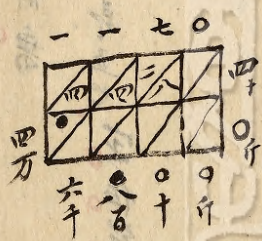 一 一 七 〇
四 四 二八 四十
〇斤
四万
六千 八百 〇十 〇斤